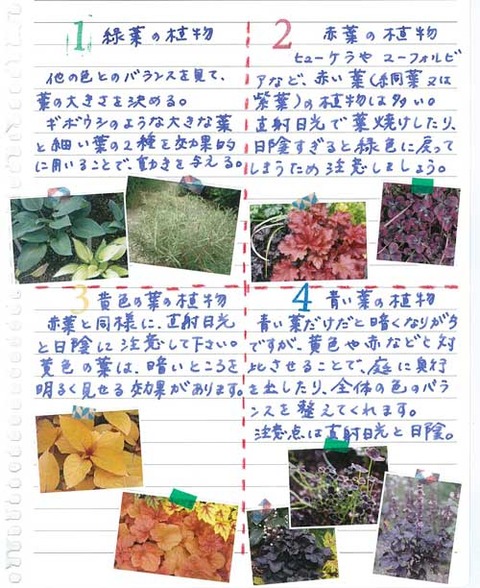 1 緑葉の植物
他の色とのバランスを見て、
葉の大きさを決める。
ギボウシのような大きな葉
と細い葉の2種を効果的
に用いることで、動きを与える。
2 赤葉の植物
ヒューケラやユーフォルビ
アなど、赤い葉(銅葉又は
紫葉)の植物は多い。
直射日光で葉焼けしたり、
日陰すぎると緑色に戻って
しまうため注意しましょう。
3 黄色の葉の植物
赤葉と同様に、直射日光
と日陰に注意して下さい。
黄色の葉は、暗いところを
明るく見せる効果があります。
4 青い葉の植物
青い葉だけだと暗くなりがち
ですが、黄色や赤などと対
比させることで、庭に奥行
を出したり、全体の色のバラ
ンスを整えてくれます。
注意点は直射日光と日陰。